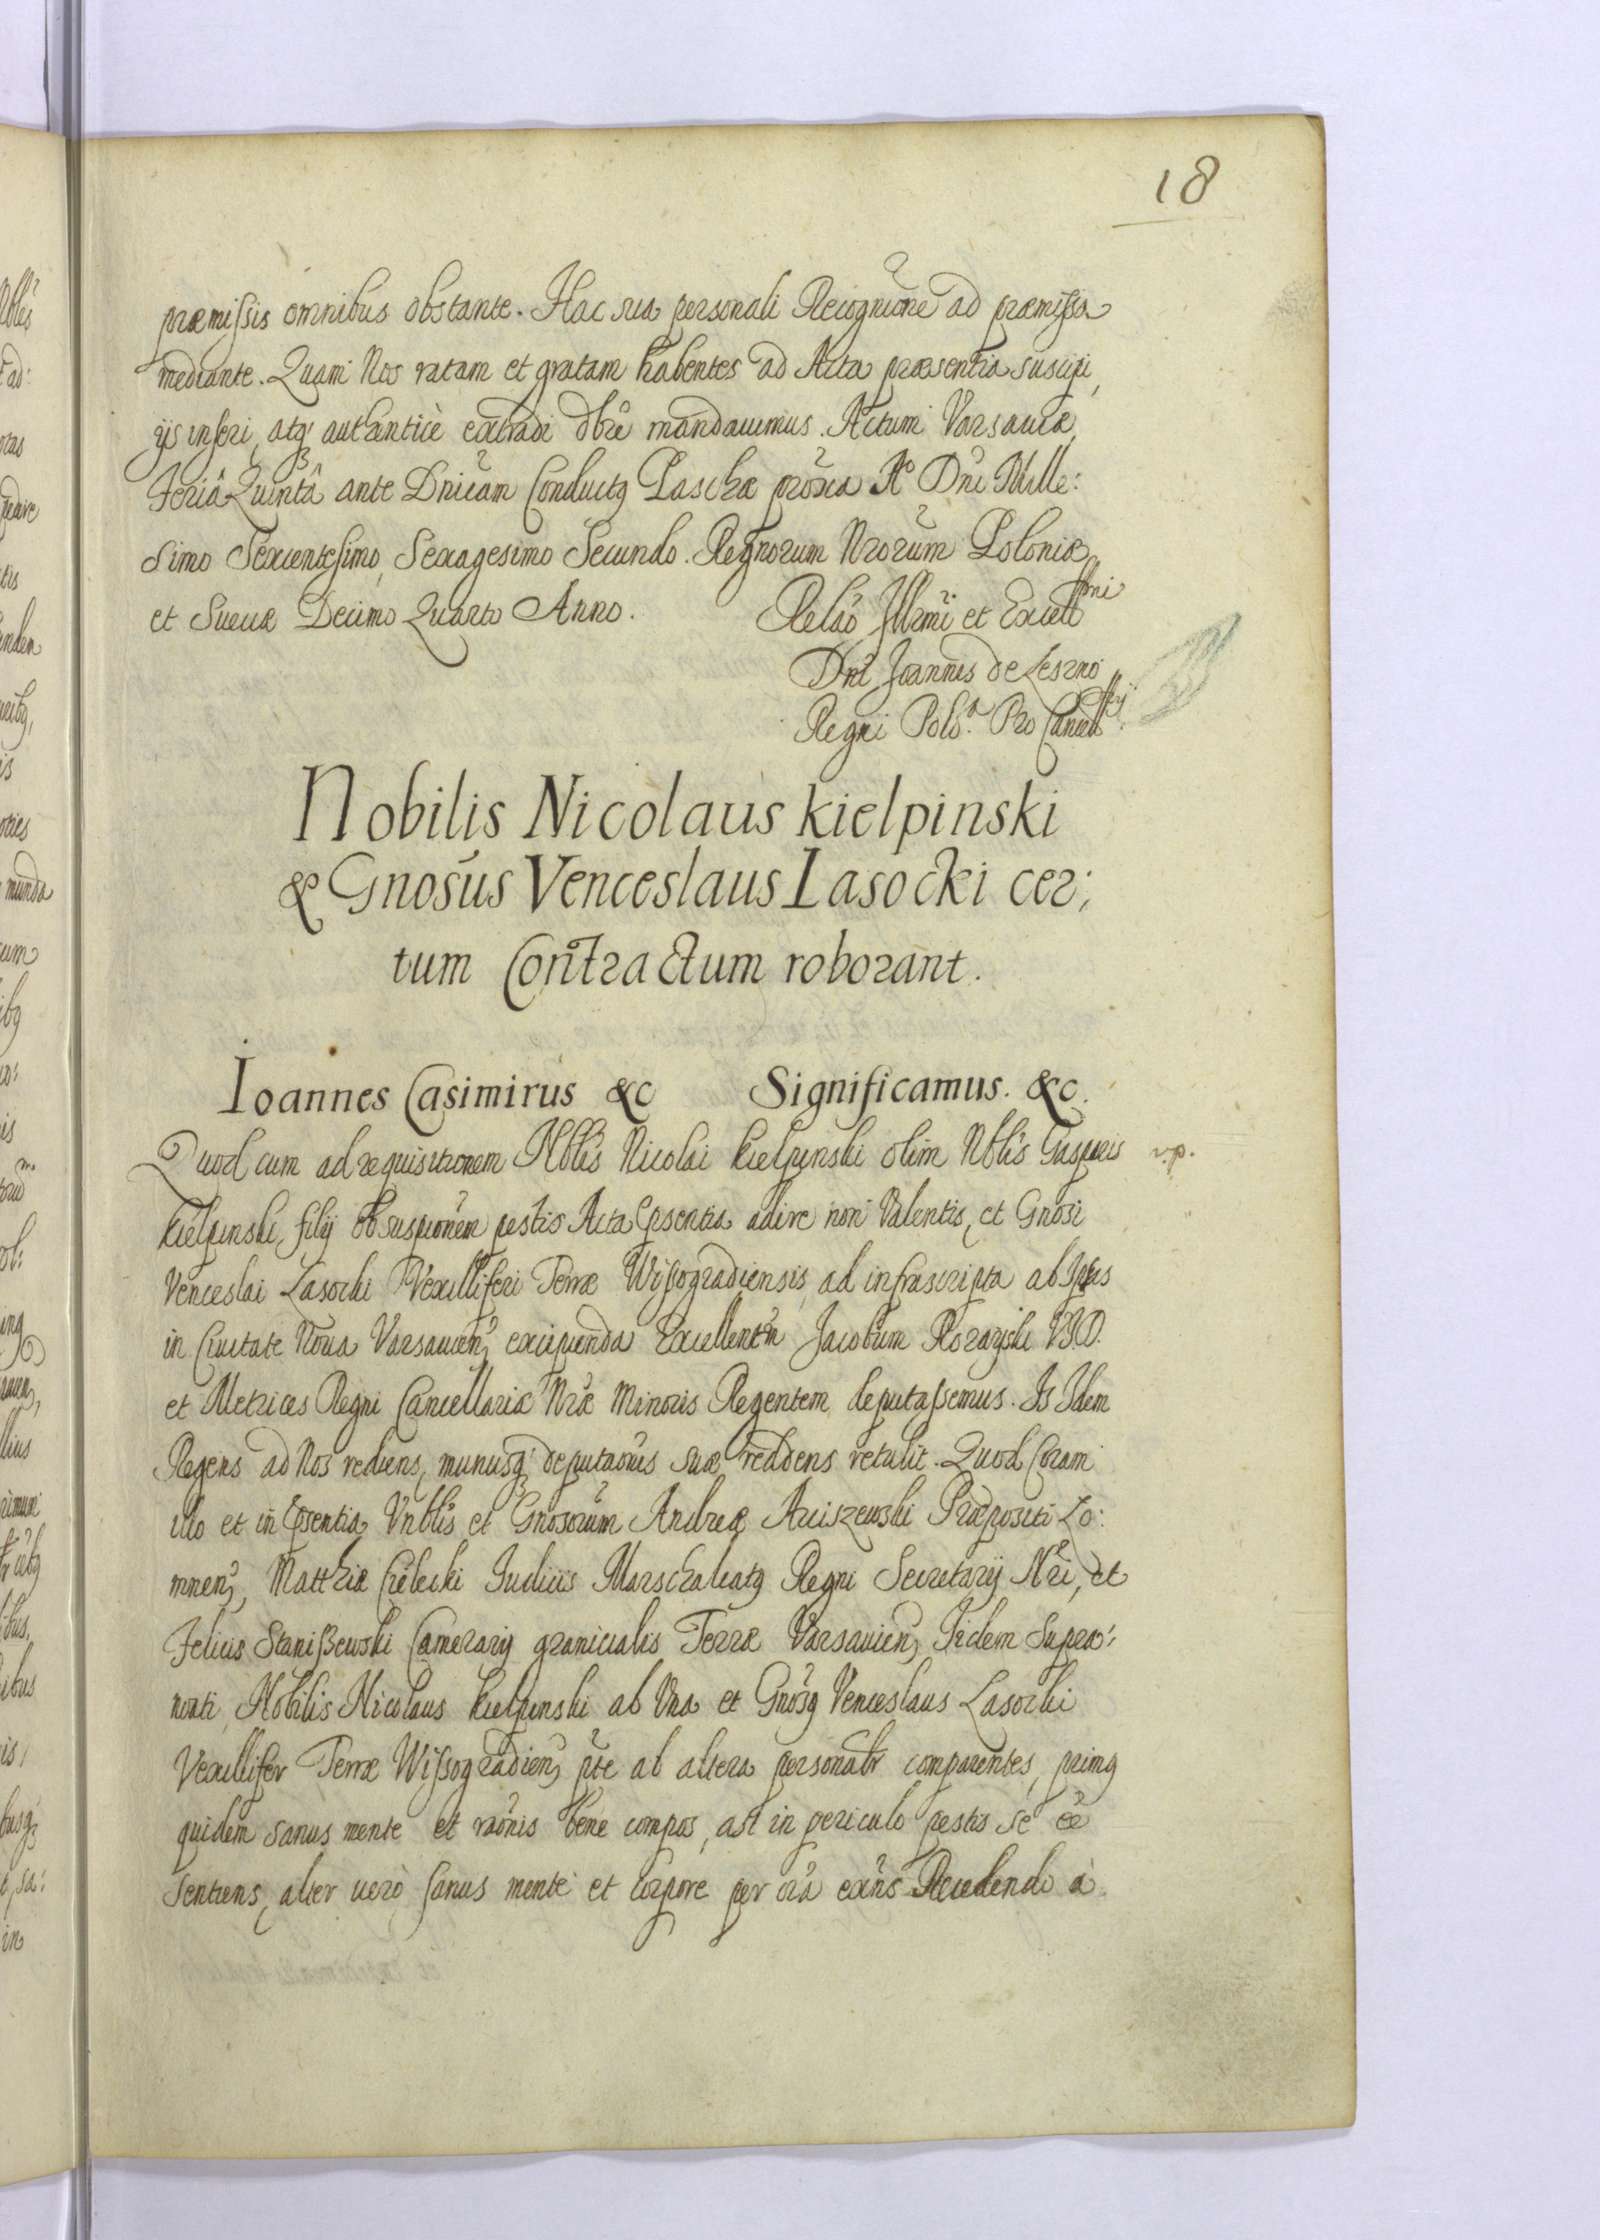 18
præmissis omnibus obstante. Hac sua personali Recognitione ad præmissa
mediante. Quam Nos ratam et gratam habentes ad Acta præsentia suscipi,
ijs inseri, atq authenticè extradi dbre mandauimus. Actum Varsauiæ,
Feriâ Quintâ ante Dnicam Conductq Paschæ proxia Ao Dni Mille:
simo Sexcentesimo, Sexagesimo Secundo. Regnorum Nrorum Poloniæ
et Sueciæ Decimo Quarto Anno.
Relao Illrmi et Excellmi
Dni Joannis de Leszno
Regni Polo. Pro Cancellrij
Nobilis Nicolaus Kielpinski
& Gnosus Venceslaus Lasocki cer;
tum Contractum roborant.
Ioannes Casimirus &c Significamus. &c.
Quod cum ad requisitionem Nblis Nicolai Kielpinski olim Nblis Gasparis v.p.
Kielpinski, filij ob suspionem pestis Acta psentia adire non Valentis, et Gnosi
Venceslai Lasocki Vexilliferi Terræ Wissogradiensis, ad infrascripta ab Ipsis
in Ciuitate Noua Varsauien, excipienda Excellentem Jacobum Rozazski VJD.
et Metrices Regni Cancellariæ Nræ Minoris Regentem deputassemus. Is Idem
Regens ad Nos rediens, munusq deputaonis suæ reddens retulit. Quod Coram
illo et in psentia Vnblis et Gnosorum Andreæ Aciszewski Præpositi Lo:
mnen, Matthiæ Cielecki Iudicis Marschalcatq Regni Secretarij Nri, et
Felicis Staniszewski Camerarij granicialis Terræ Varsauien, Iidem Supra:
noati, Nobilis Nicolaus Kielpinski ab Vna et Gnosq Venceslaus Lasocki
Vexillifer Terræ Wissogradien, pte ab altera personalr comparentes, primq
quidem sanus mente et raonis bene compos, ast in periculo pestis se ee
sentiens, alter uerò sanus mente et corpore per oia exns Recedendo à